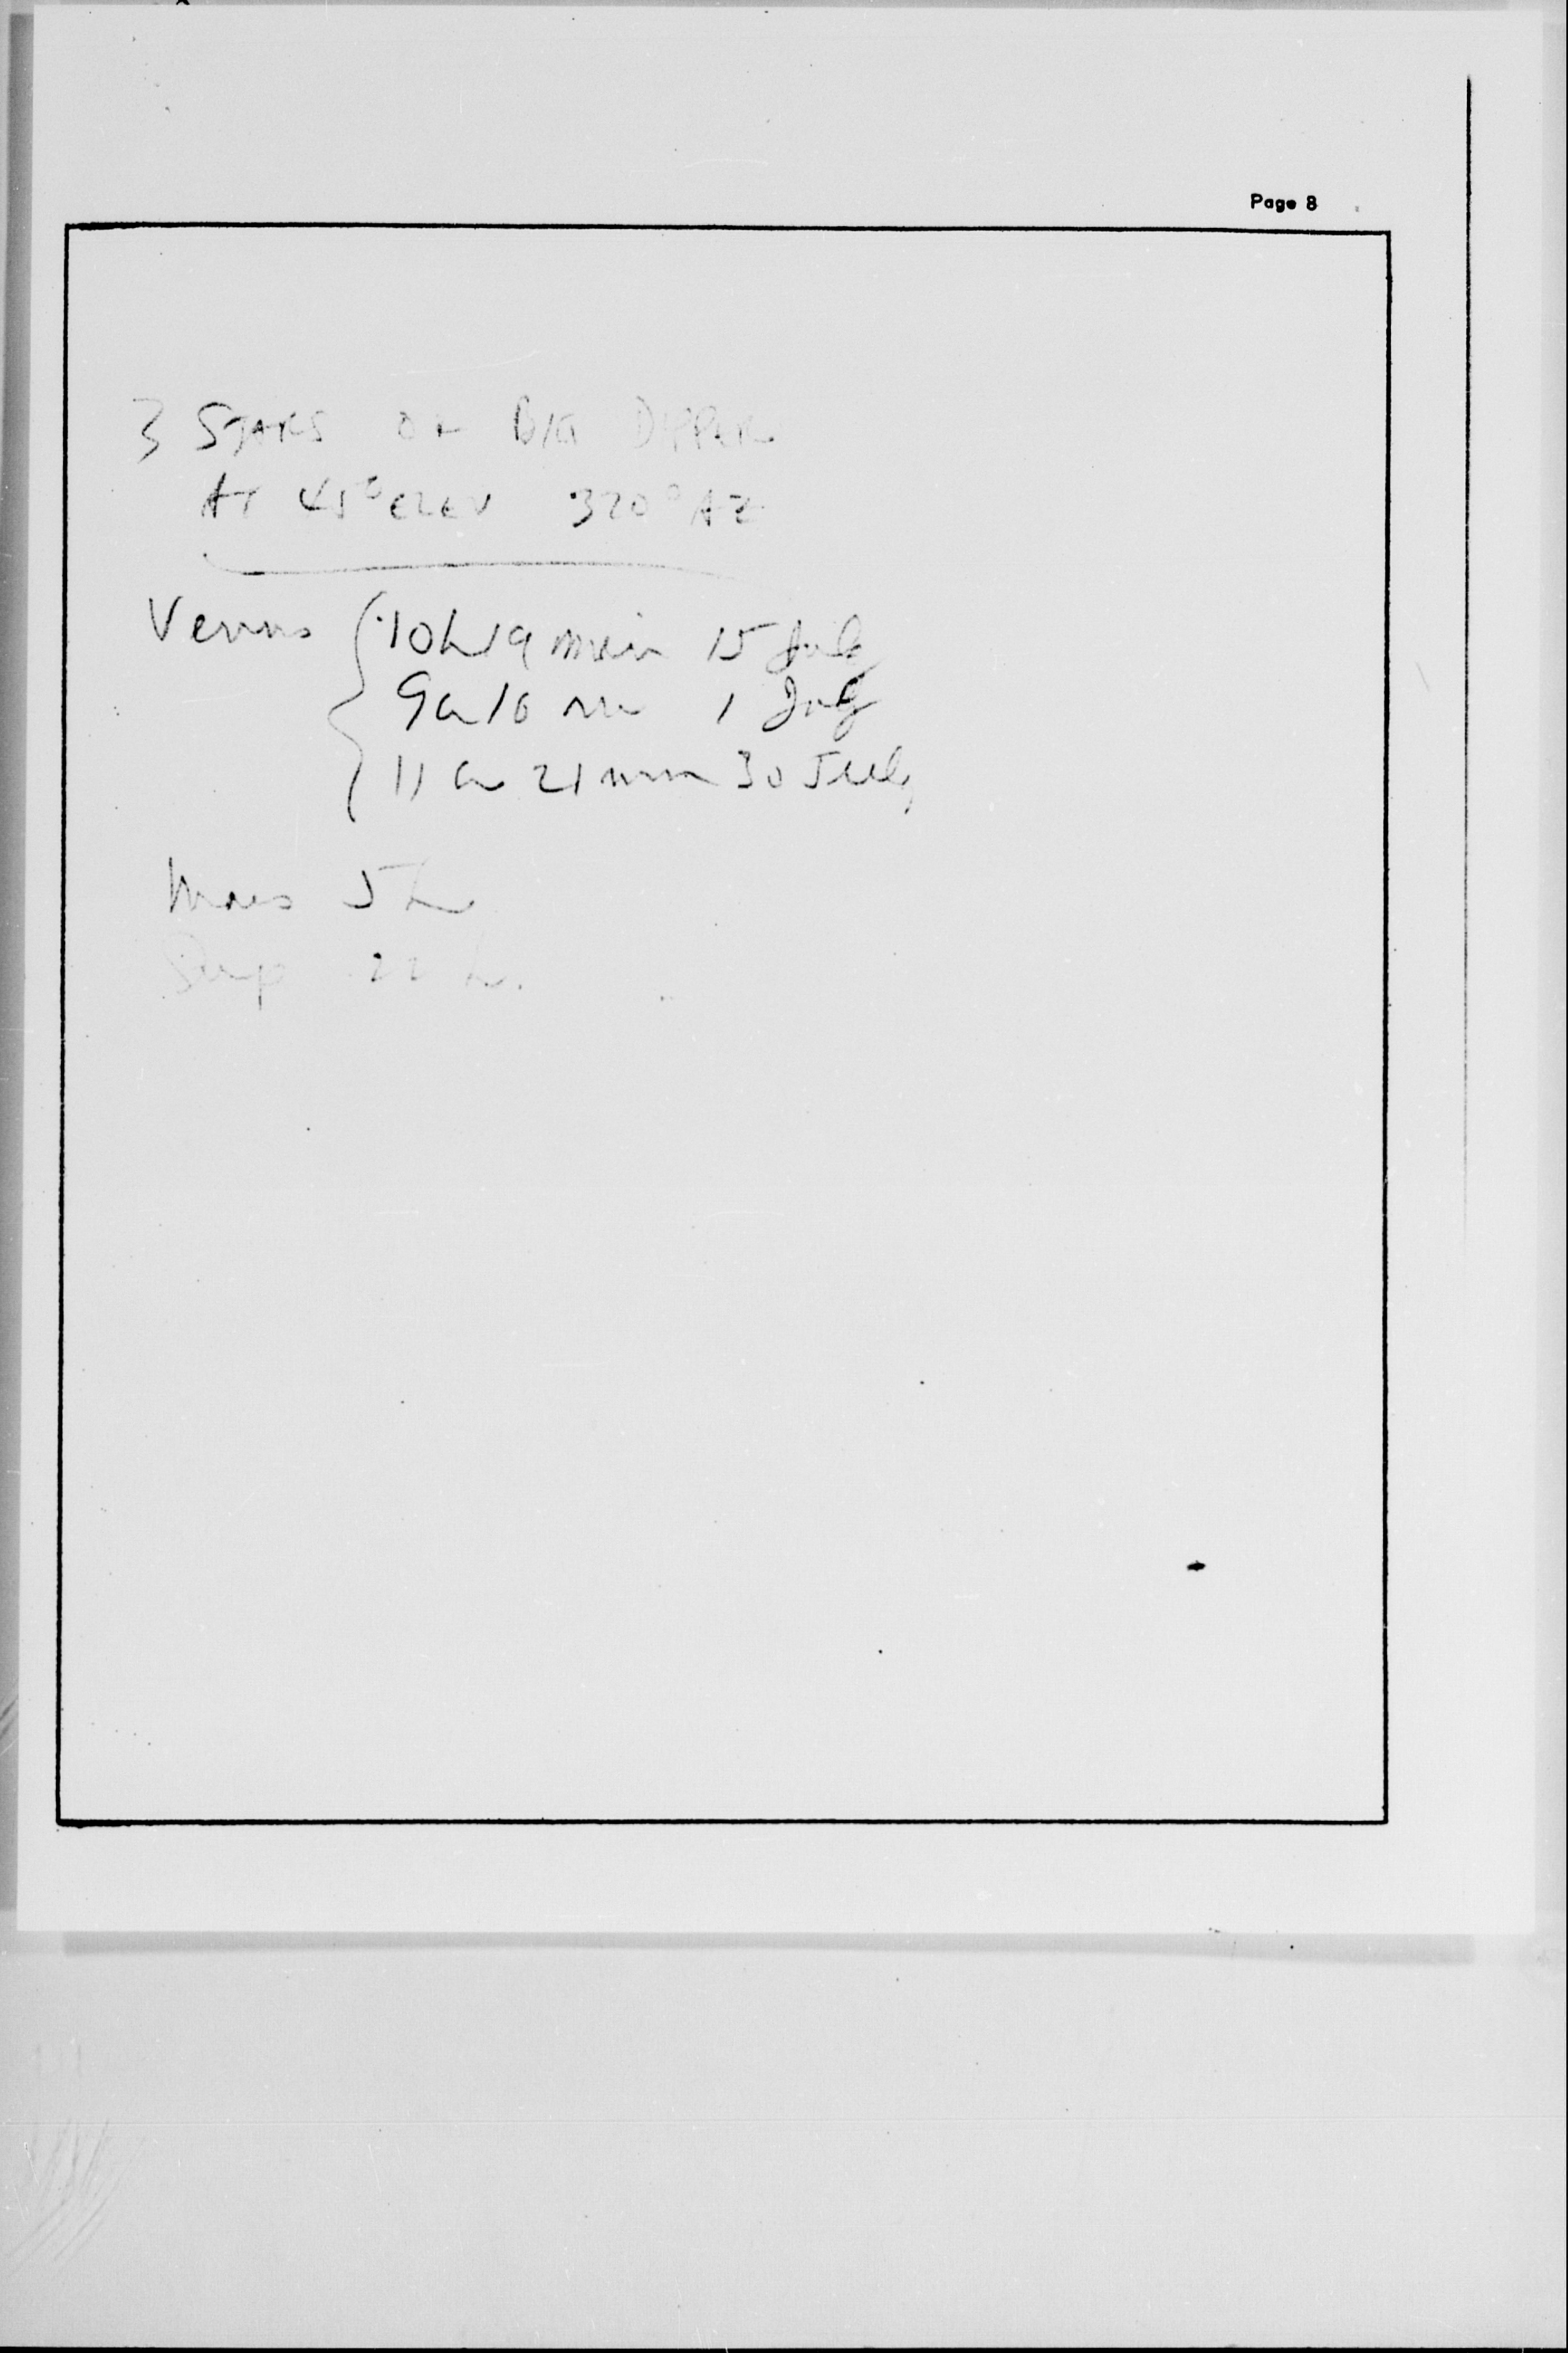 Page 8
3 STARS OF BIG DIPPER
AT 45° ELEV 320° AZ
Venus 10h 19 min 15 July
9h 16 m 1 July
11 h 21 min 30 July
Mars 5 h
22 h.